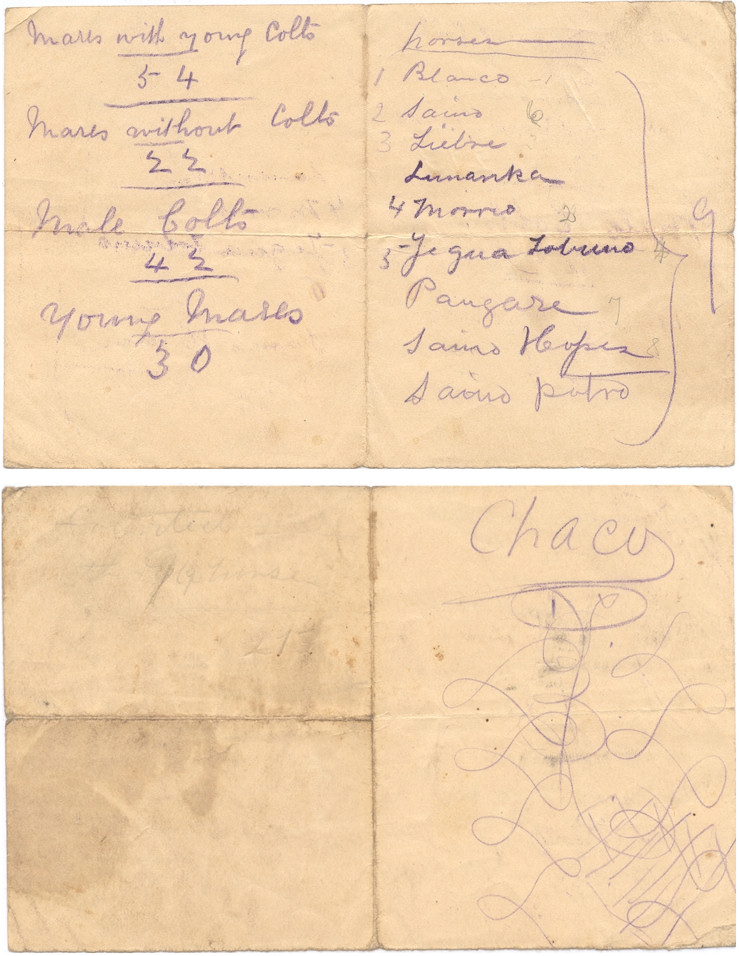 Mares with young Colts
54
Mares without Colts
22
Male Colts
42
Young Mares
30
horses
1 Blanco - 1
2 Saino 6
3 Liebre
Lunarska
4 Morro 2
5 - Yegua Lobuno 4
Pangare 7
Saino Hopes 8
Saino potro
9
Chaco